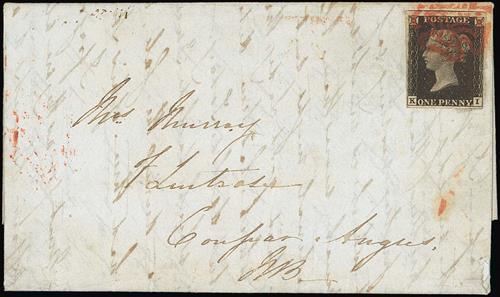 POSTAGE
K I
ONE PENNY
Mrs Murray
of Lintrose
Coupar Angus,
NB